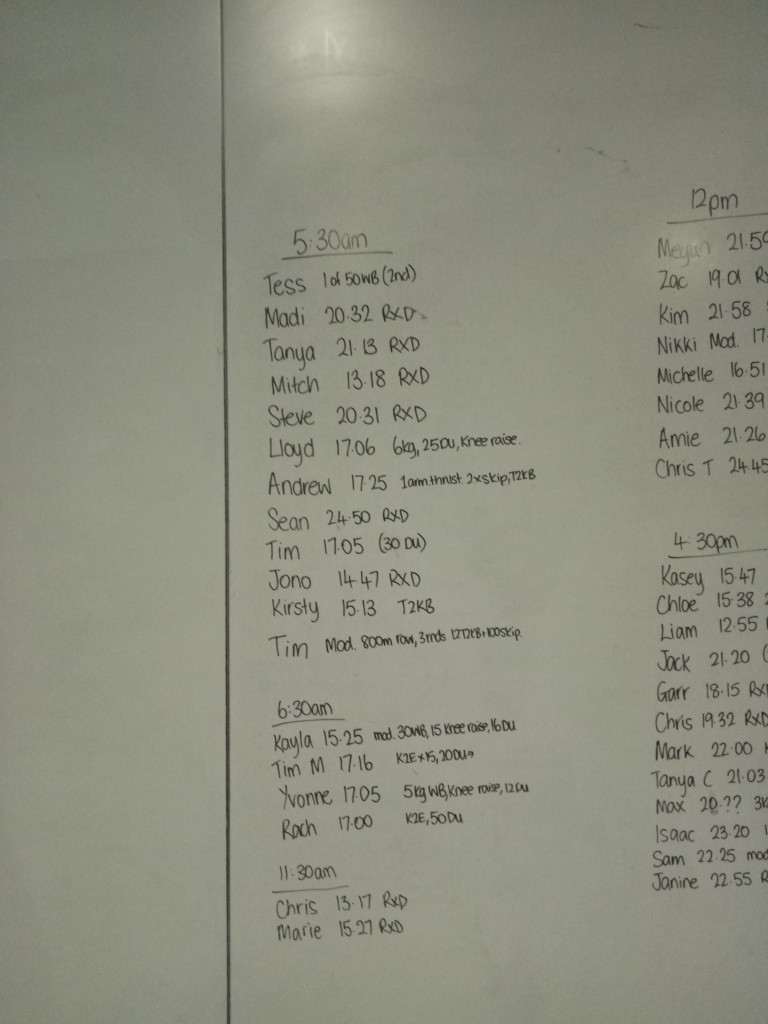 5:30am
Tess 1 of 50WB (2nd)
Madi 20.32 RXD
Tanya 21.13 RXD
Mitch 13.18 RXD
Steve 20.31 RXD
Lloyd 17.06 6kg, 25DU, Knee raise.
Andrew 17.25 1arm.thrust. 2xskip, T2KB
Sean 24.50 RXD
Tim 17.05 (30 DU)
Jono 14.47 RXD
Kirsty 15.13 T2KB
Tim Mod. 800m row, 3rnds 12T2KB+100skip.
6:30am
Kayla 15.25 mod. 30WB, 15 Knee raise, 16DU
Tim M 17.16 K2E x15, 20DU
Yvonne 17.05 5kg WB, Knee raise, 12DU
Rach 17.00 K2E, 50DU
11:30am
Chris 13.17 RXD
Marie 15.27 RXD
12pm
Megan 21.59
Zac 19.01 Rx
Kim 21.58
Nikki Mod. 17.
Michelle 16.51
Nicole 21.39
Amie 21.26
Chris T 24.45
4:30pm
Kasey 15.47
Chloe 15.38
Liam 12.55
Jack 21.20 (
Garr 18.15 RX
Chris 19.32 RXD
Mark 22.00
Tanya C 21.03
Max 20.?? 3k
Isaac 23.20
Sam 22.25 mod
Janine 22.55 R